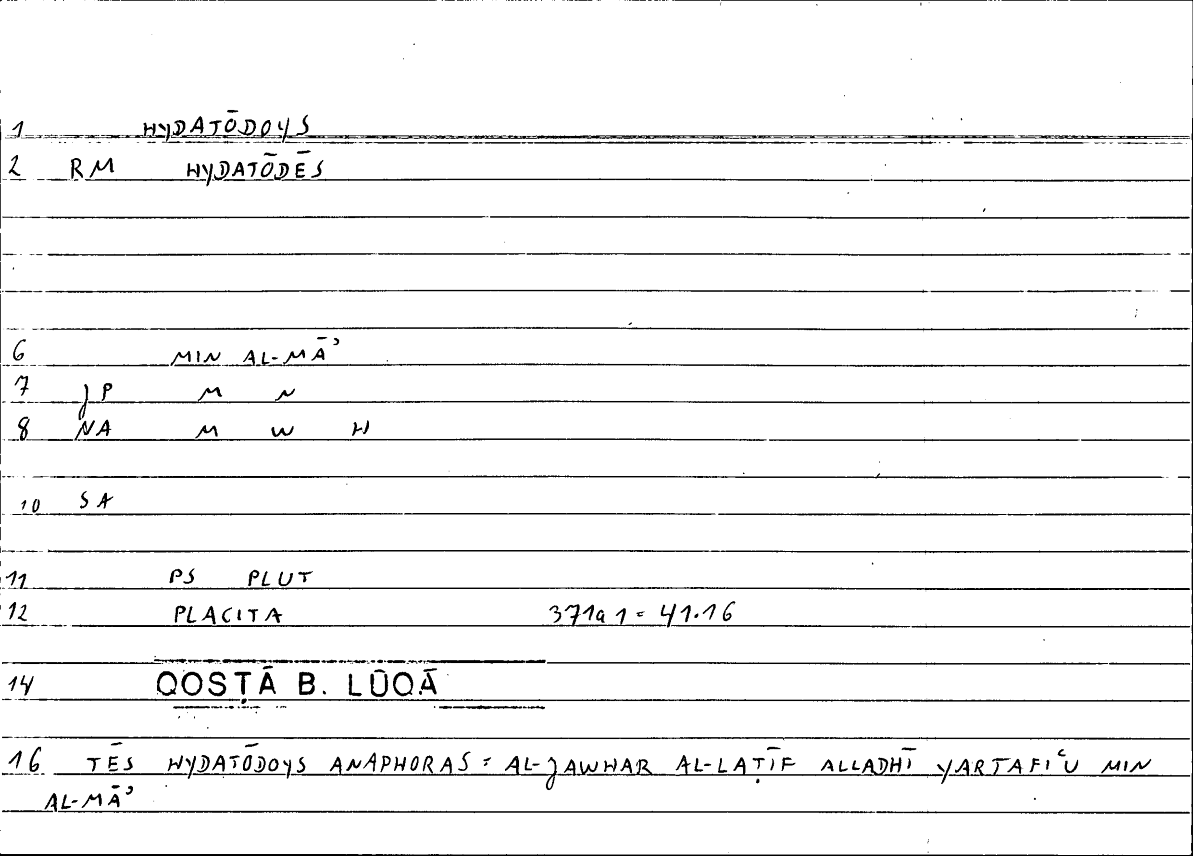 1 HYDATŌDOYS
2 RM HYDATŌDĒS
6 MIN AL-MĀʾ
7 JP M N
8 NA M W H
10 SA
11 PS PLUT
12 PLACITA 371a 1 = 41.16
14 QOSṬĀ B. LŪQĀ
16 TĒS HYDATŌDOYS ANAPHORAS = AL-JAWHAR AL-LAṬĪF ALLADHĪ YARTAFIʿU MIN
AL-MĀʾ